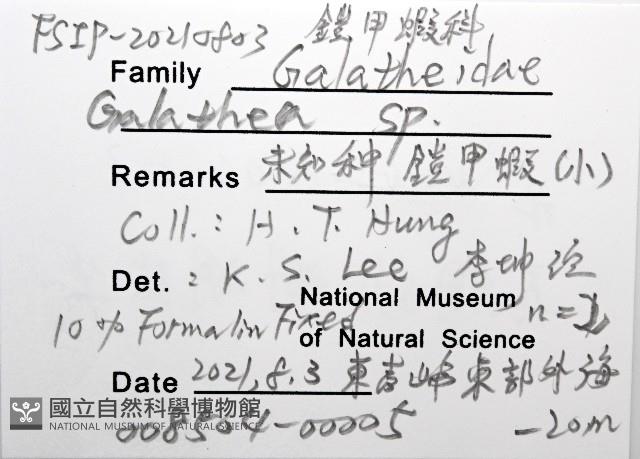 FSIP-20210803 鎧甲蝦科
Family Galatheidae
Galathea sp.
Remarks 未知种 鎧甲蝦(小)
Coll.: H. T. Hung
Det.: K. S. Lee 李坤
National Museum
10% Formalin Fixed
of Natural Science
n=
Date 2021,8.3 東吉嶼東部外海
國立自然科學博物館
NATIONAL MUSEUM OF NATURAL SCIENCE
008504-00005 -20m